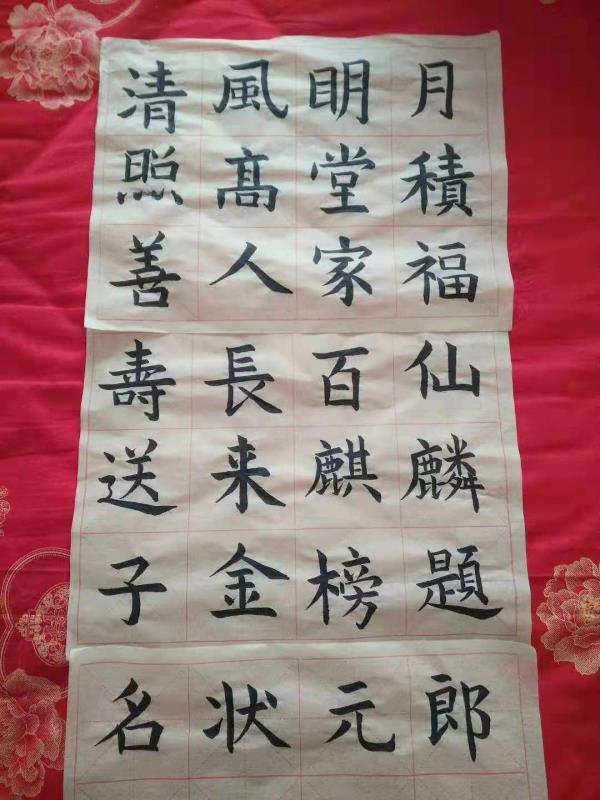 清風明月
照髙堂積
善人家福
壽長百仙
送来麒麟
子金榜題
名状元郎